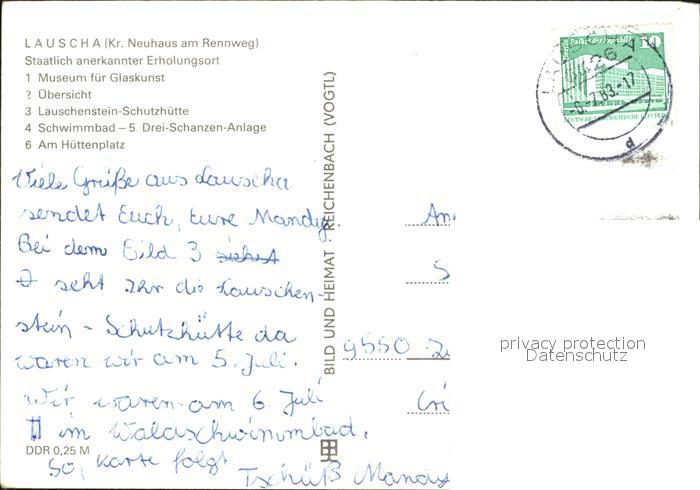 LAUSCHA (Kr. Neuhaus am Rennweg)
Staatlich anerkannter Erholungsort
1 Museum für Glaskunst
2 Übersicht
3 Lauschenstein-Schutzhütte
4 Schwimmbad – 5 Drei-Schanzen-Anlage
6 Am Hüttenplatz
Viele Grüße aus Lauscha
sendet Euch, eure Mandy.
Bei dem Bild 3 siehst
seht Ihr die Lauschen-
stein-Schutzhütte da
waren wir am 5. Juli.
Wir waren am 6. Juli
im Waldschwimmbad.
So, Karte folgt
Tschüß Mandy
DDR 0,25 M
BILD UND HEIMAT · REICHENBACH (VOGTL)
An
S
9550
Cri
10
privacy protection
Datenschutz